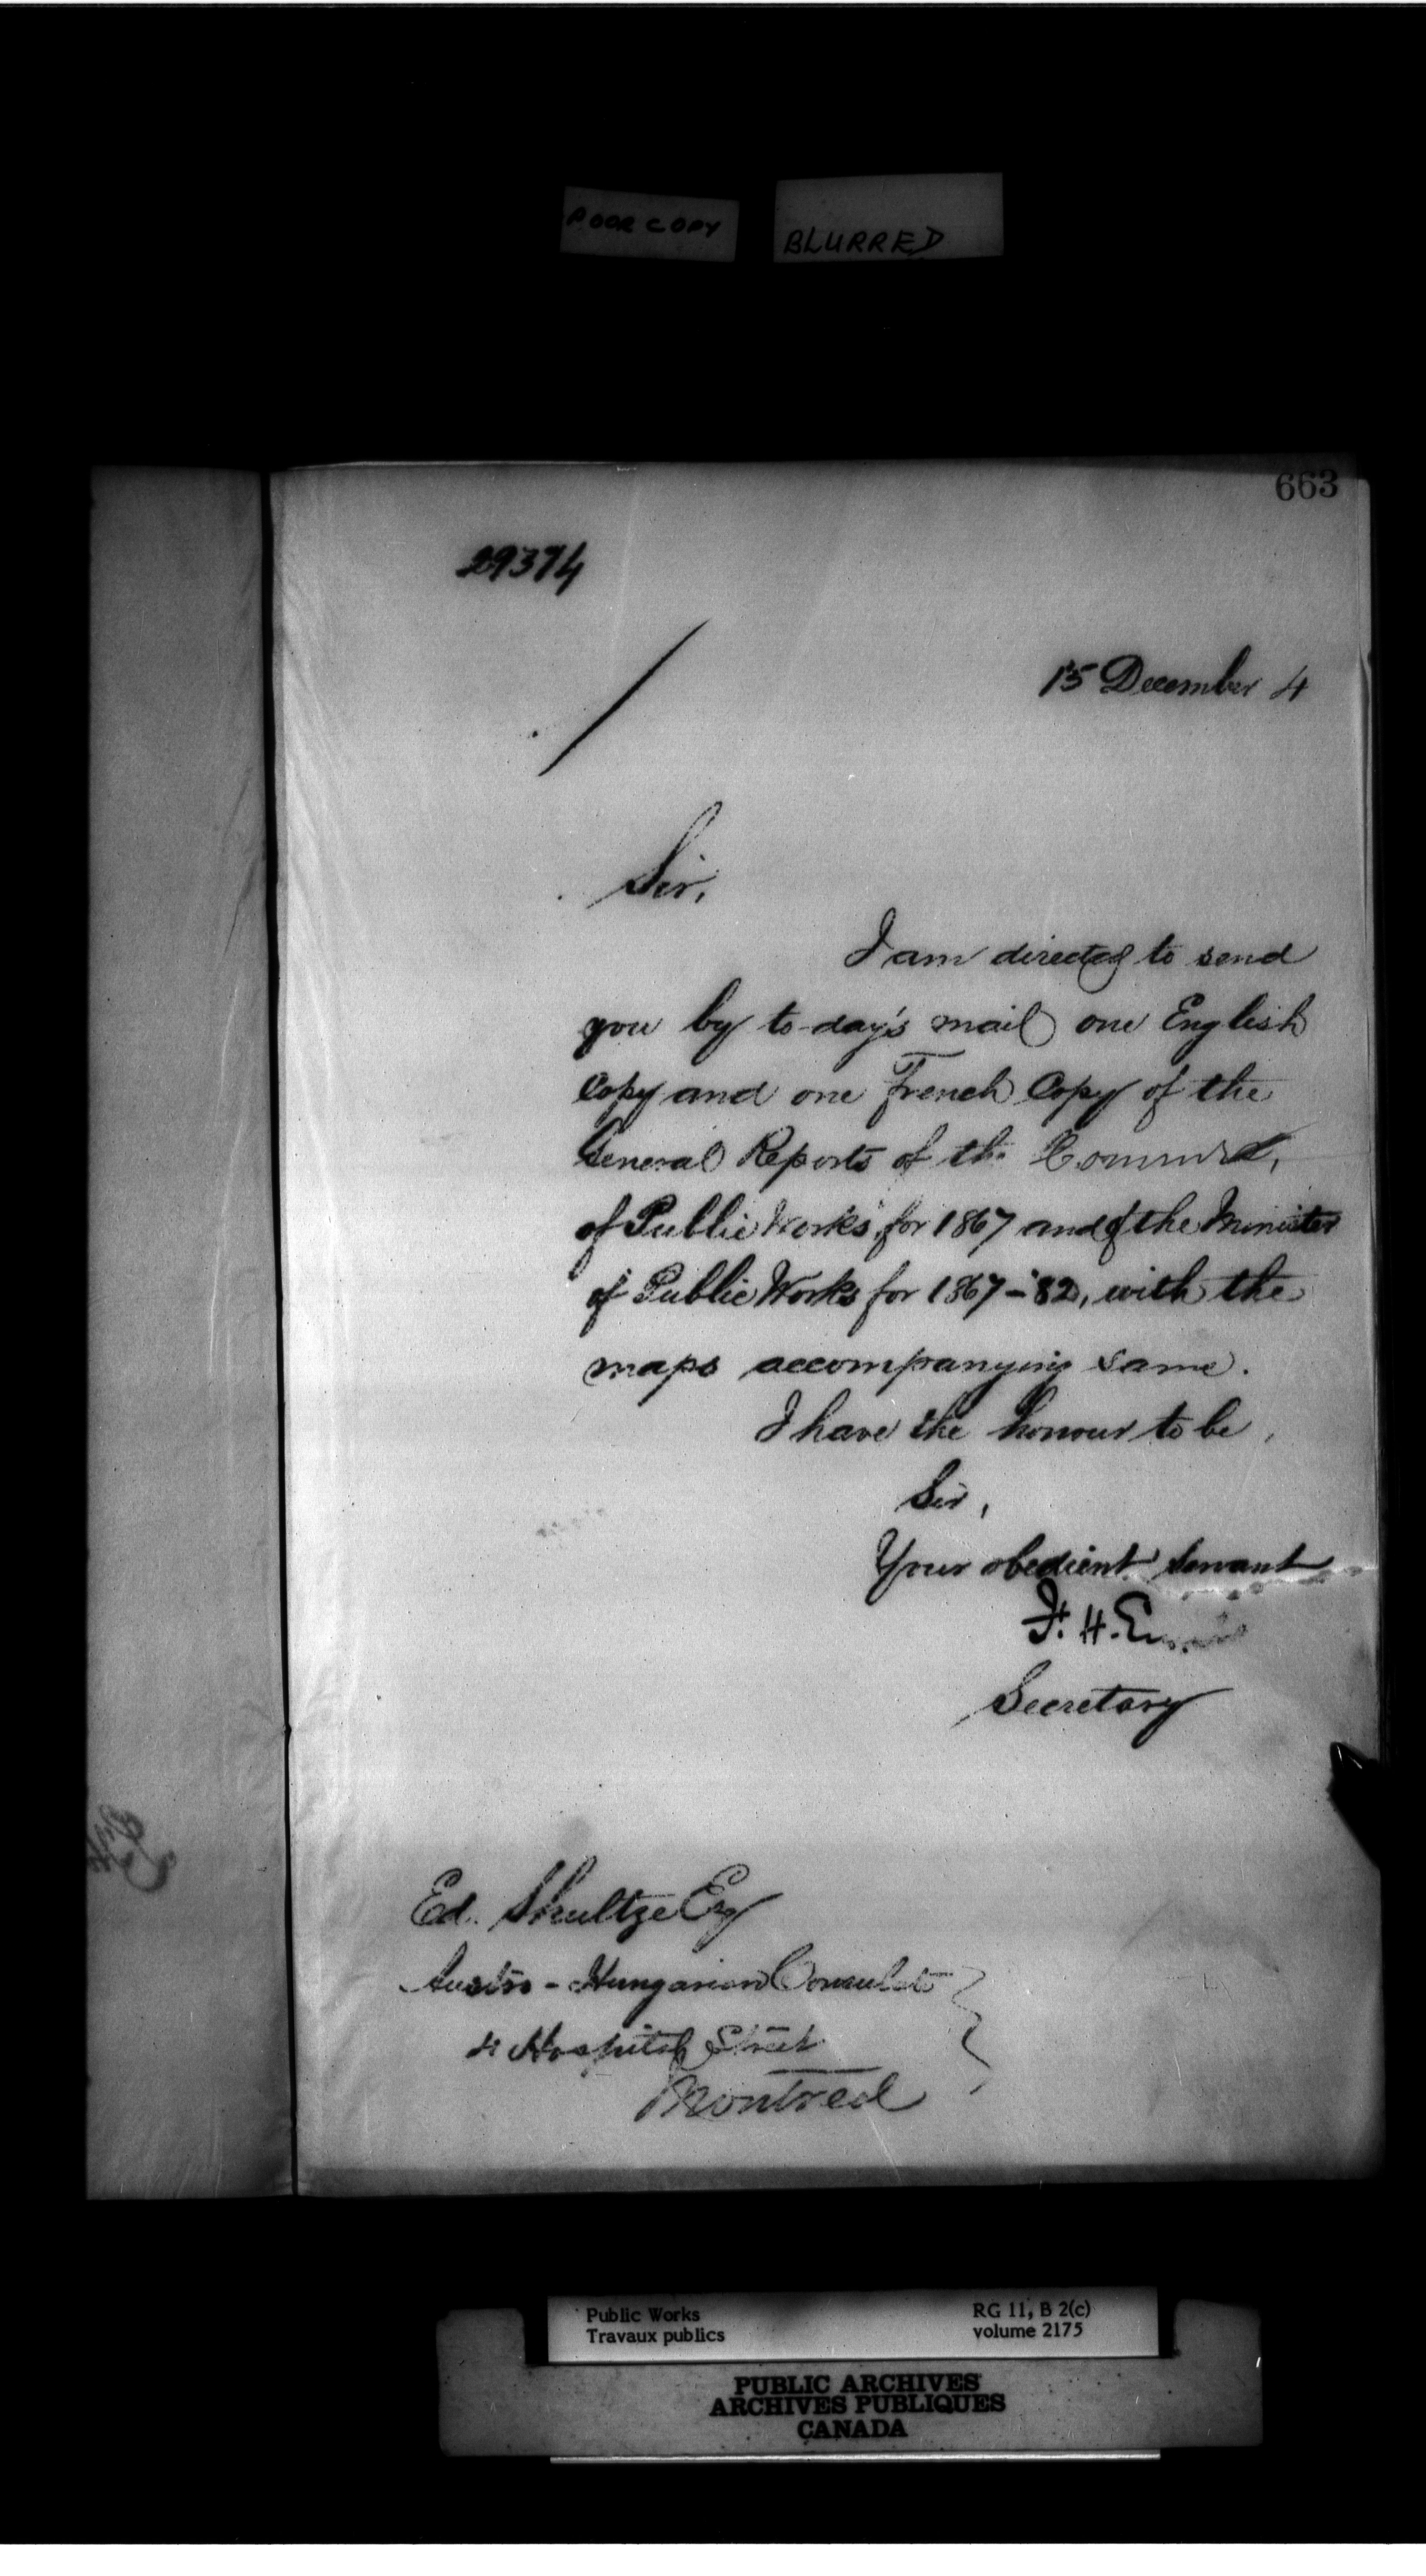 POOR COPY
BLURRED
663
29374
15 December 4
Sir,
I am directed to send
you by to-day's mail one English
Copy and one French Copy of the
General Reports of the
of Public Works for 1867 and of the Minister
of Public Works for 1867-'82, with the
maps accompanying same.
I have the honour to be,
Sir,
Your obedient servant
F. H.
Secretary
Ed. Shultze Esq
Austro-Hungarian Consulate
Hospital Street
Montreal
Public Works
Travaux publics
RG 11, B 2(c)
volume 2175
PUBLIC ARCHIVES
ARCHIVES PUBLIQUES
CANADA